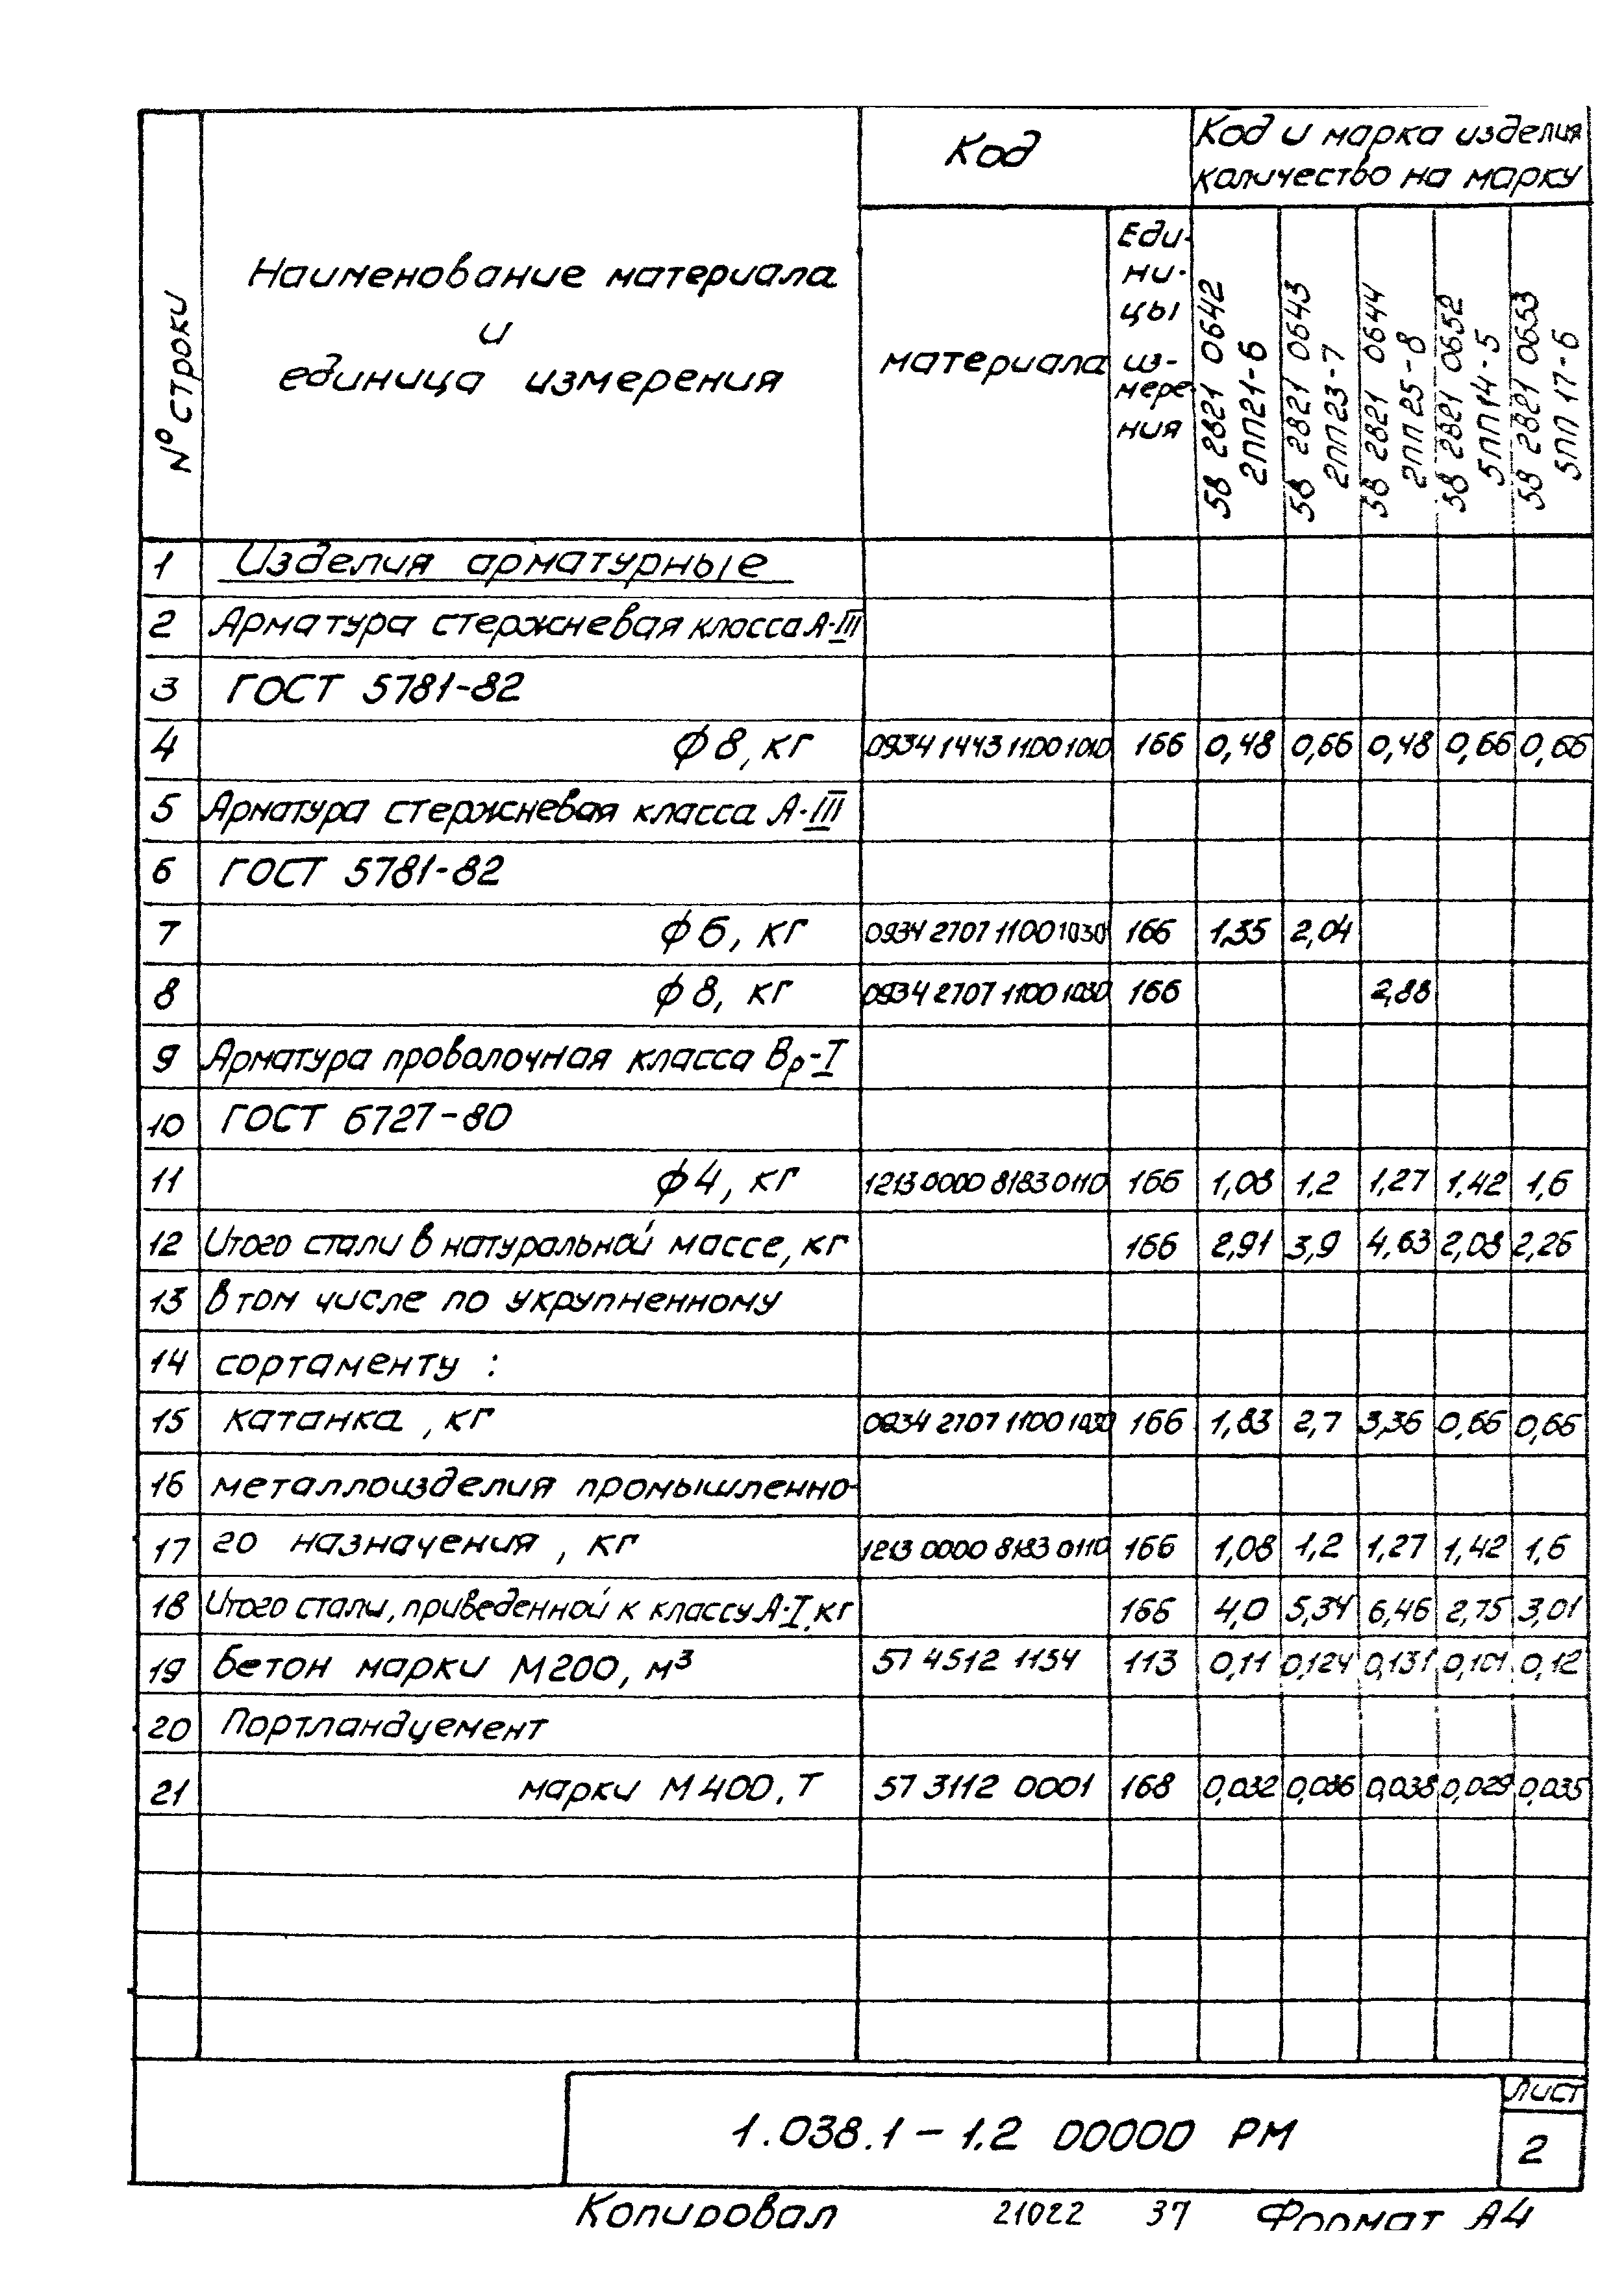 № строки
Наименование материала
и
единица измерения
Код
Код и марка изделия
количество на марку
материала
Еди-
ни-
цы
из-
мере-
ния
58 2821 0642
2ПП21-6
58 2821 0643
2ПП23-7
58 2821 0644
2ПП25-8
58 2821 0652
5ПП14-5
58 2821 0653
5ПП17-6
1 Изделия арматурные
2 Арматура стержневая класса А-III
3 ГОСТ 5781-82
4 ф8, кг 0934 1443 1100 1010 166 0,48 0,66 0,48 0,66 0,66
5 Арматура стержневая класса А-III
6 ГОСТ 5781-82
7 ф6, кг 0934 2707 1100 1030 166 1,35 2,04
8 ф8, кг 0934 2707 1100 1030 166 2,88
9 Арматура проволочная класса Вр-I
10 ГОСТ 6727-80
11 ф4, кг 1213 0000 8183 0110 166 1,08 1,2 1,27 1,42 1,6
12 Итого стали в натуральной массе, кг 166 2,91 3,9 4,63 2,08 2,26
13 в том числе по укрупненному
14 сортаменту :
15 катанка, кг 0934 2707 1100 1030 166 1,83 2,7 3,36 0,66 0,66
16 металлоизделия промышленно-
17 го назначения, кг 1213 0000 8183 0110 166 1,08 1,2 1,27 1,42 1,6
18 Итого стали, приведенной к классу А-I, кг 166 4,0 5,34 6,46 2,75 3,01
19 Бетон марки М200, м³ 57 4512 1154 113 0,11 0,124 0,131 0,101 0,12
20 Портландцемент
21 марки М400, т 57 3112 0001 168 0,032 0,036 0,038 0,029 0,035
1.038.1-1.2 00000 РМ
Лист
2
Копировал 21022 37 Формат А4